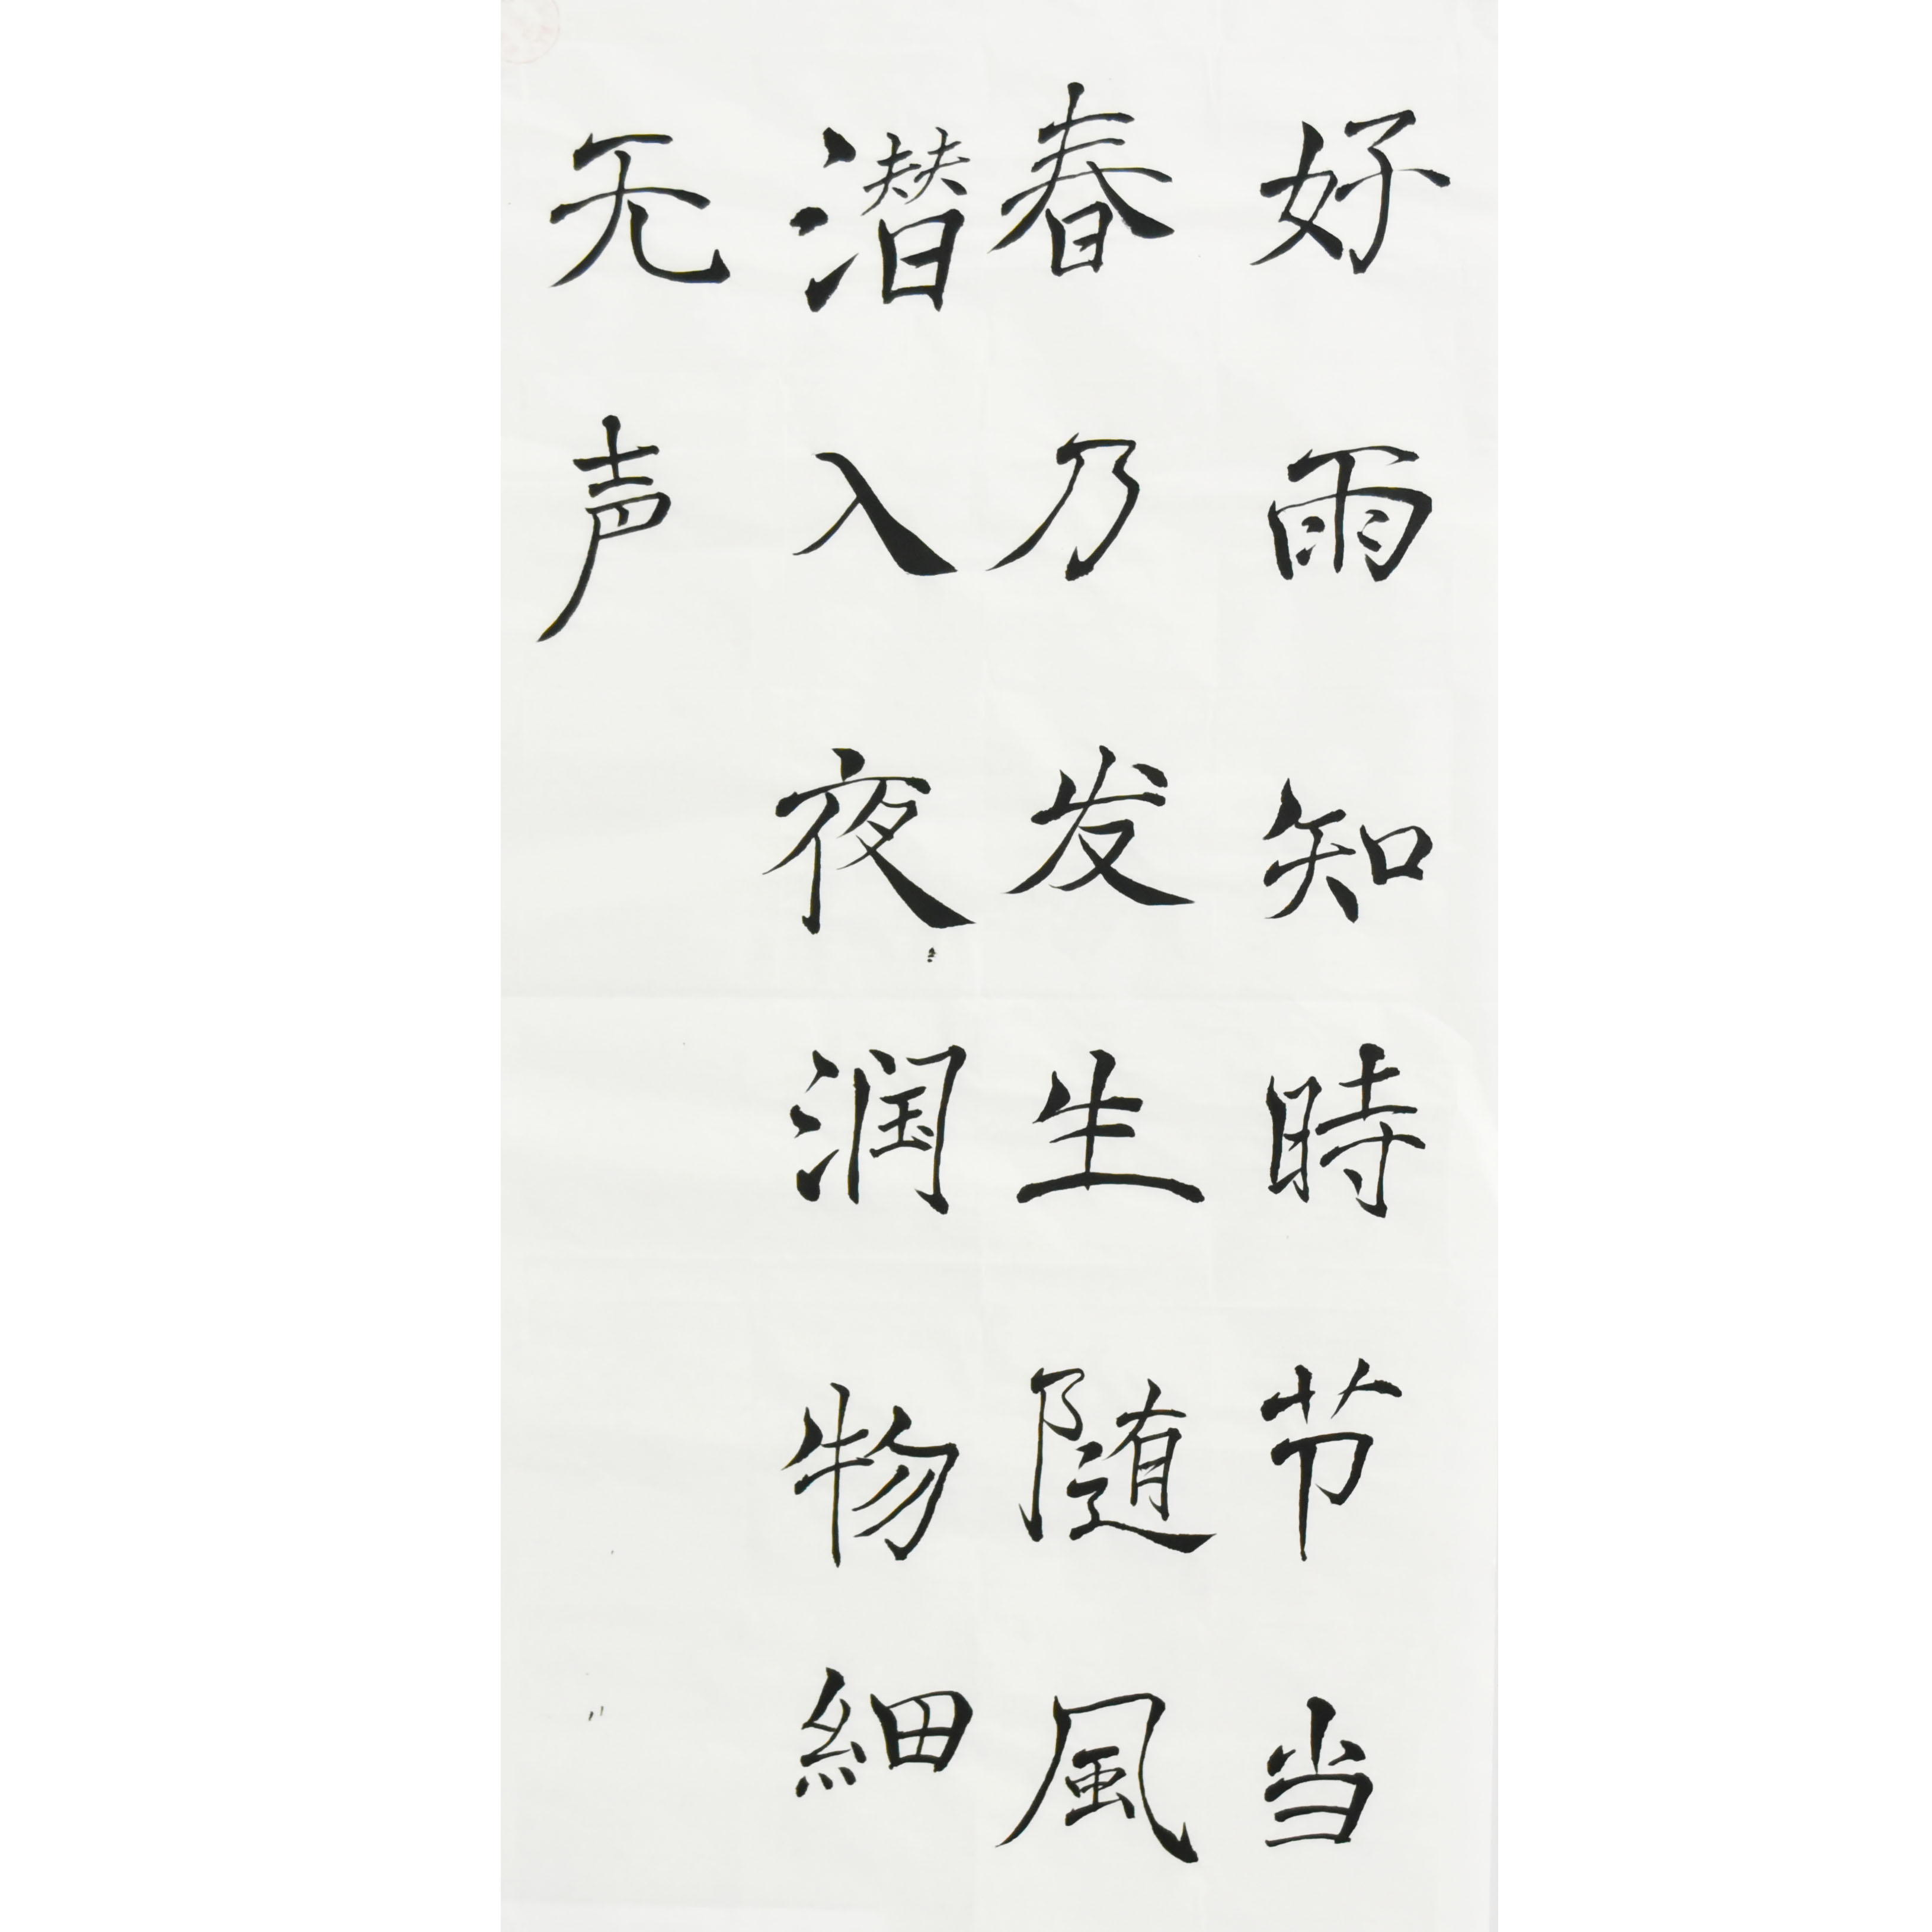 好雨知時节当
春乃发生随風
潜入夜润物細
无声